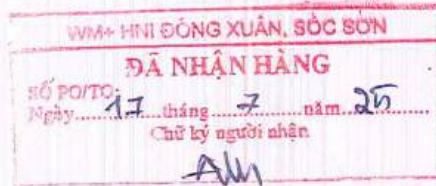 WM+ HNI ĐÔNG XUÂN, SÓC SƠN
ĐÃ NHẬN HÀNG
SỐ PO/TO:
Ngày.....17.....tháng.....7.....năm.....25
Chữ ký người nhận